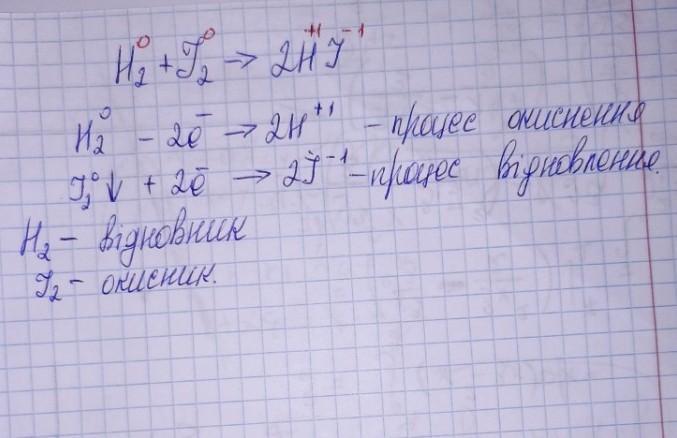 H₂⁰ + J₂⁰ → 2H⁺¹J⁻¹
H₂⁰ - 2ē → 2H⁺¹ - процес окиснення
J₂⁰↓ + 2ē → 2J⁻¹ - процес відновлення.
H₂ - відновник
J₂ - окисник.